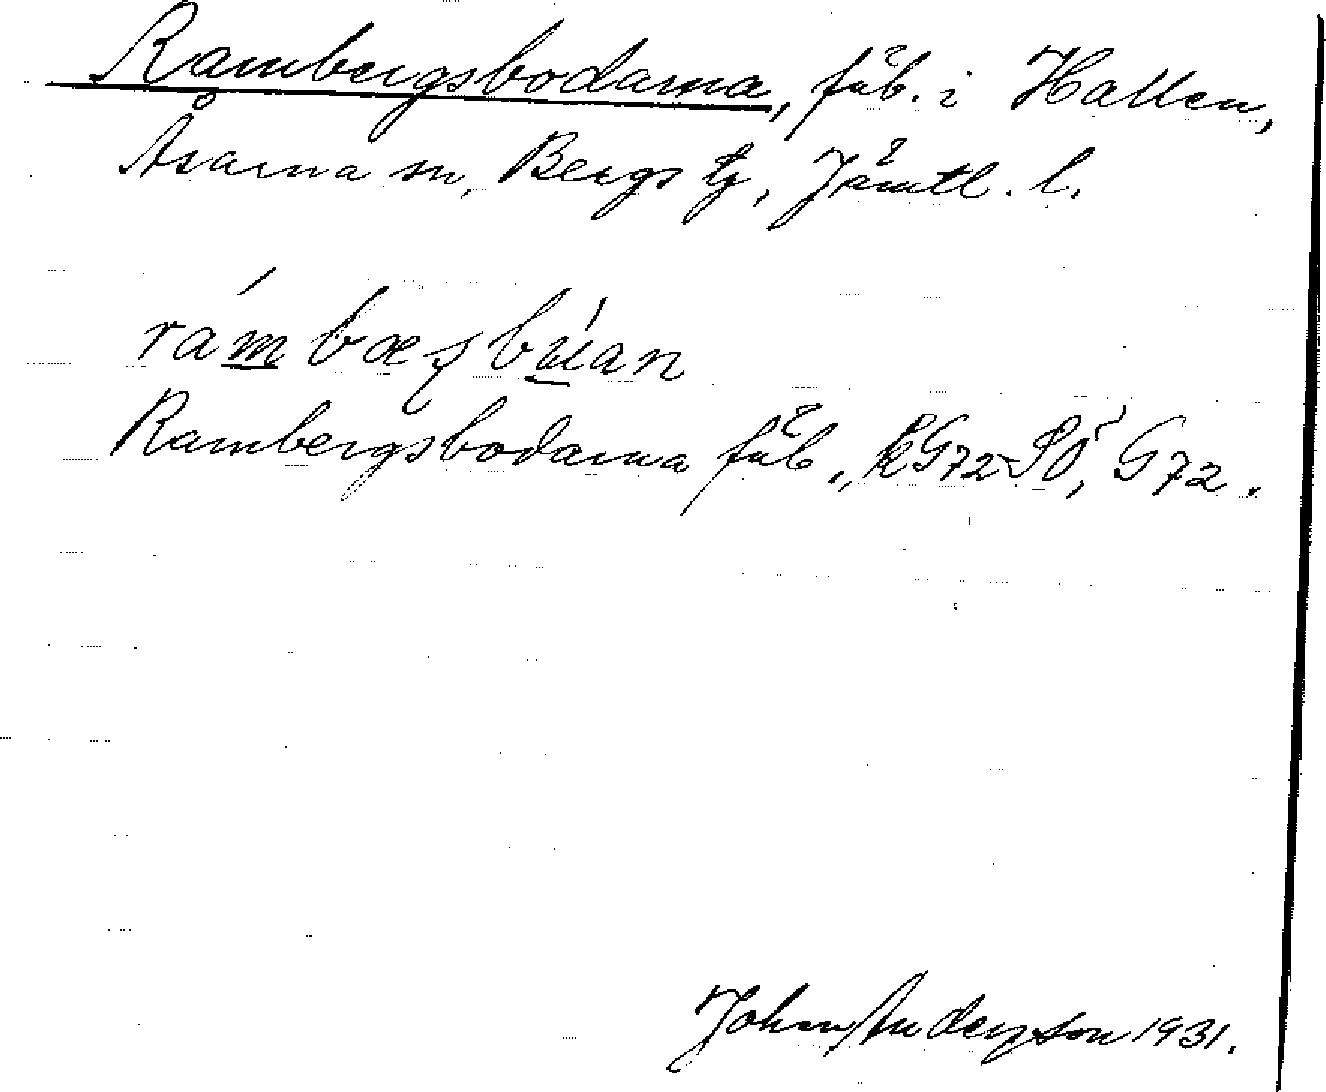 Rambergsbodarna, fäb. i Hallen,
Åsarna sn, Bergs tg, Jämtl. l.
rám bæʂ búan
Rambergsbodarna fäb., RG72SÖ, G72.
John Anderzson 1931.